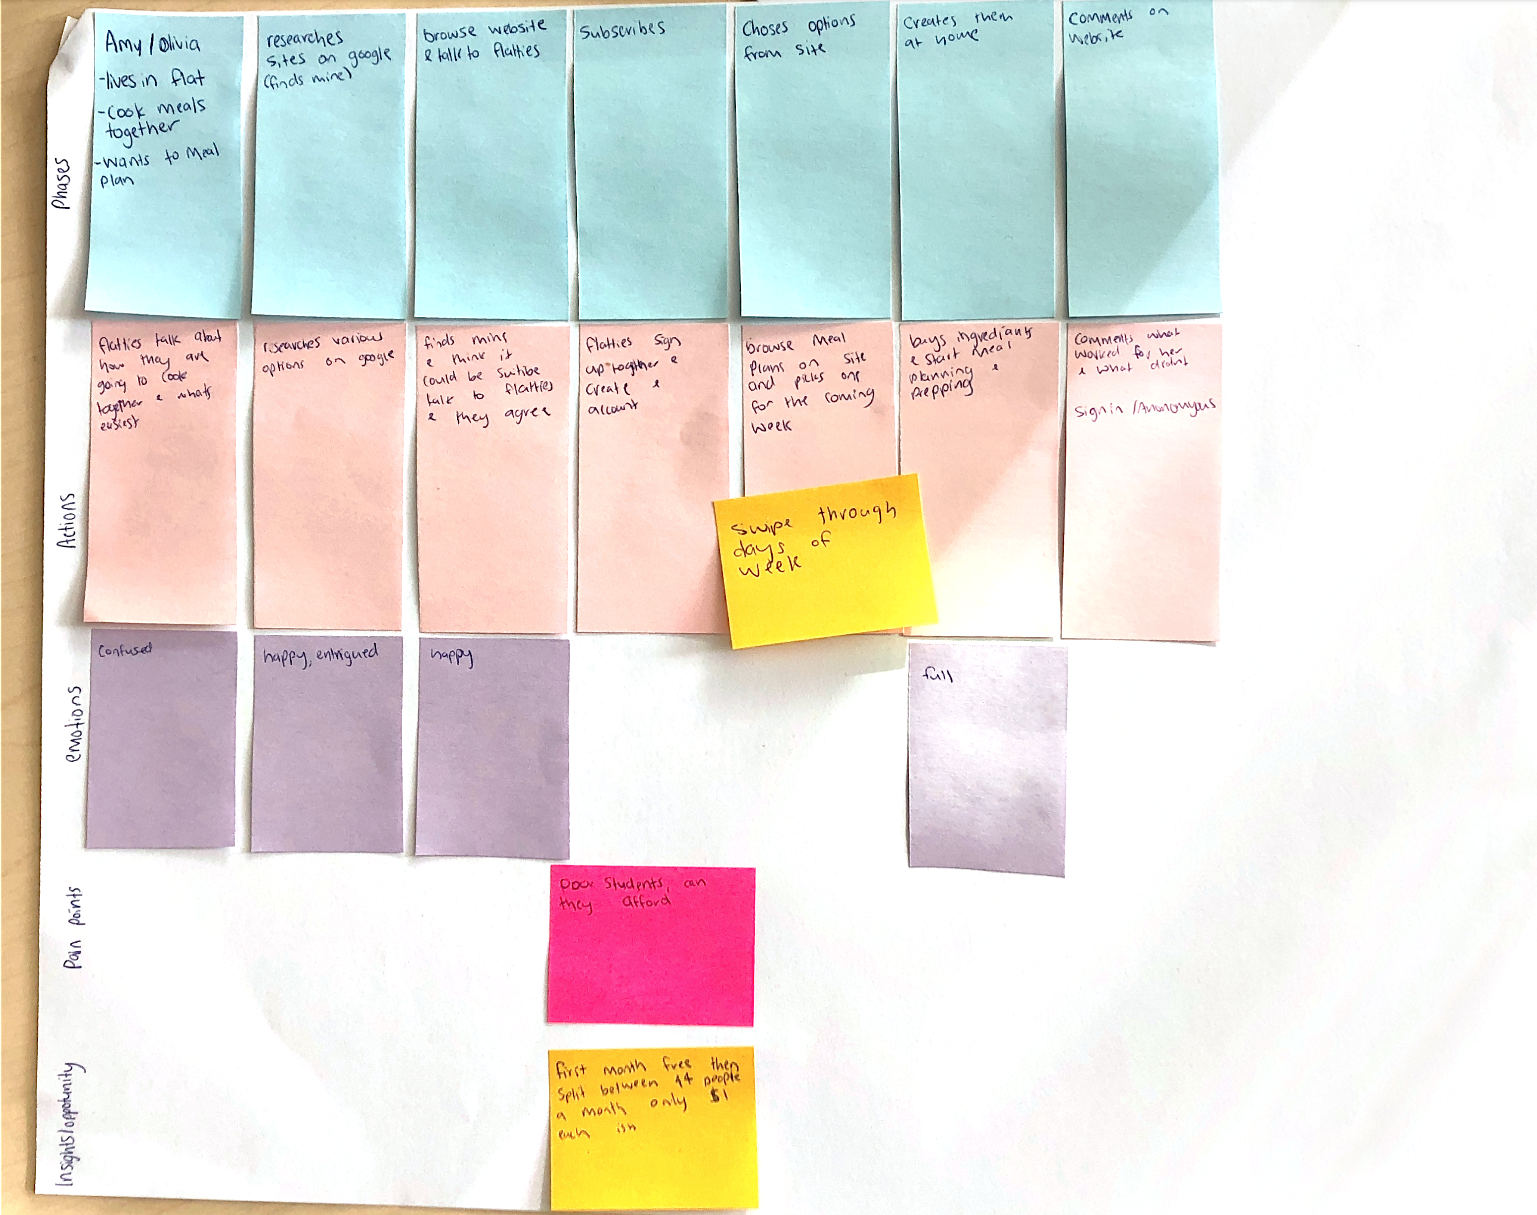 Phases
Amy/Olivia
-lives in flat
-Cook meals
together
-Wants to Meal
plan
researches
sites on google
(finds mine)
browse website
& talk to flatties
Subscribes
Choses options
from site
Creates them
at home
Comments on
Website
Actions
flatties talk about
how they are
going to cook
together & whats
easiest
researches various
options on google
finds mine
& think it
could be suitibe
talk to flatties
& they agree
flatties sign
up together &
create a
account
browse Meal
Plans on site
and picks one
for the coming
week
Swipe through
days of
week
buys ingrediants
& start meal
planning &
prepping
Comments what
worked for her
& what didnt
Sign in /Anonomyous
emotions
Confused
happy, entrigued
happy
full
Pain points
Poor Students, can
they afford
Insights/oppotunity
first month free then
Split between 44 people
a month only $1
each ish